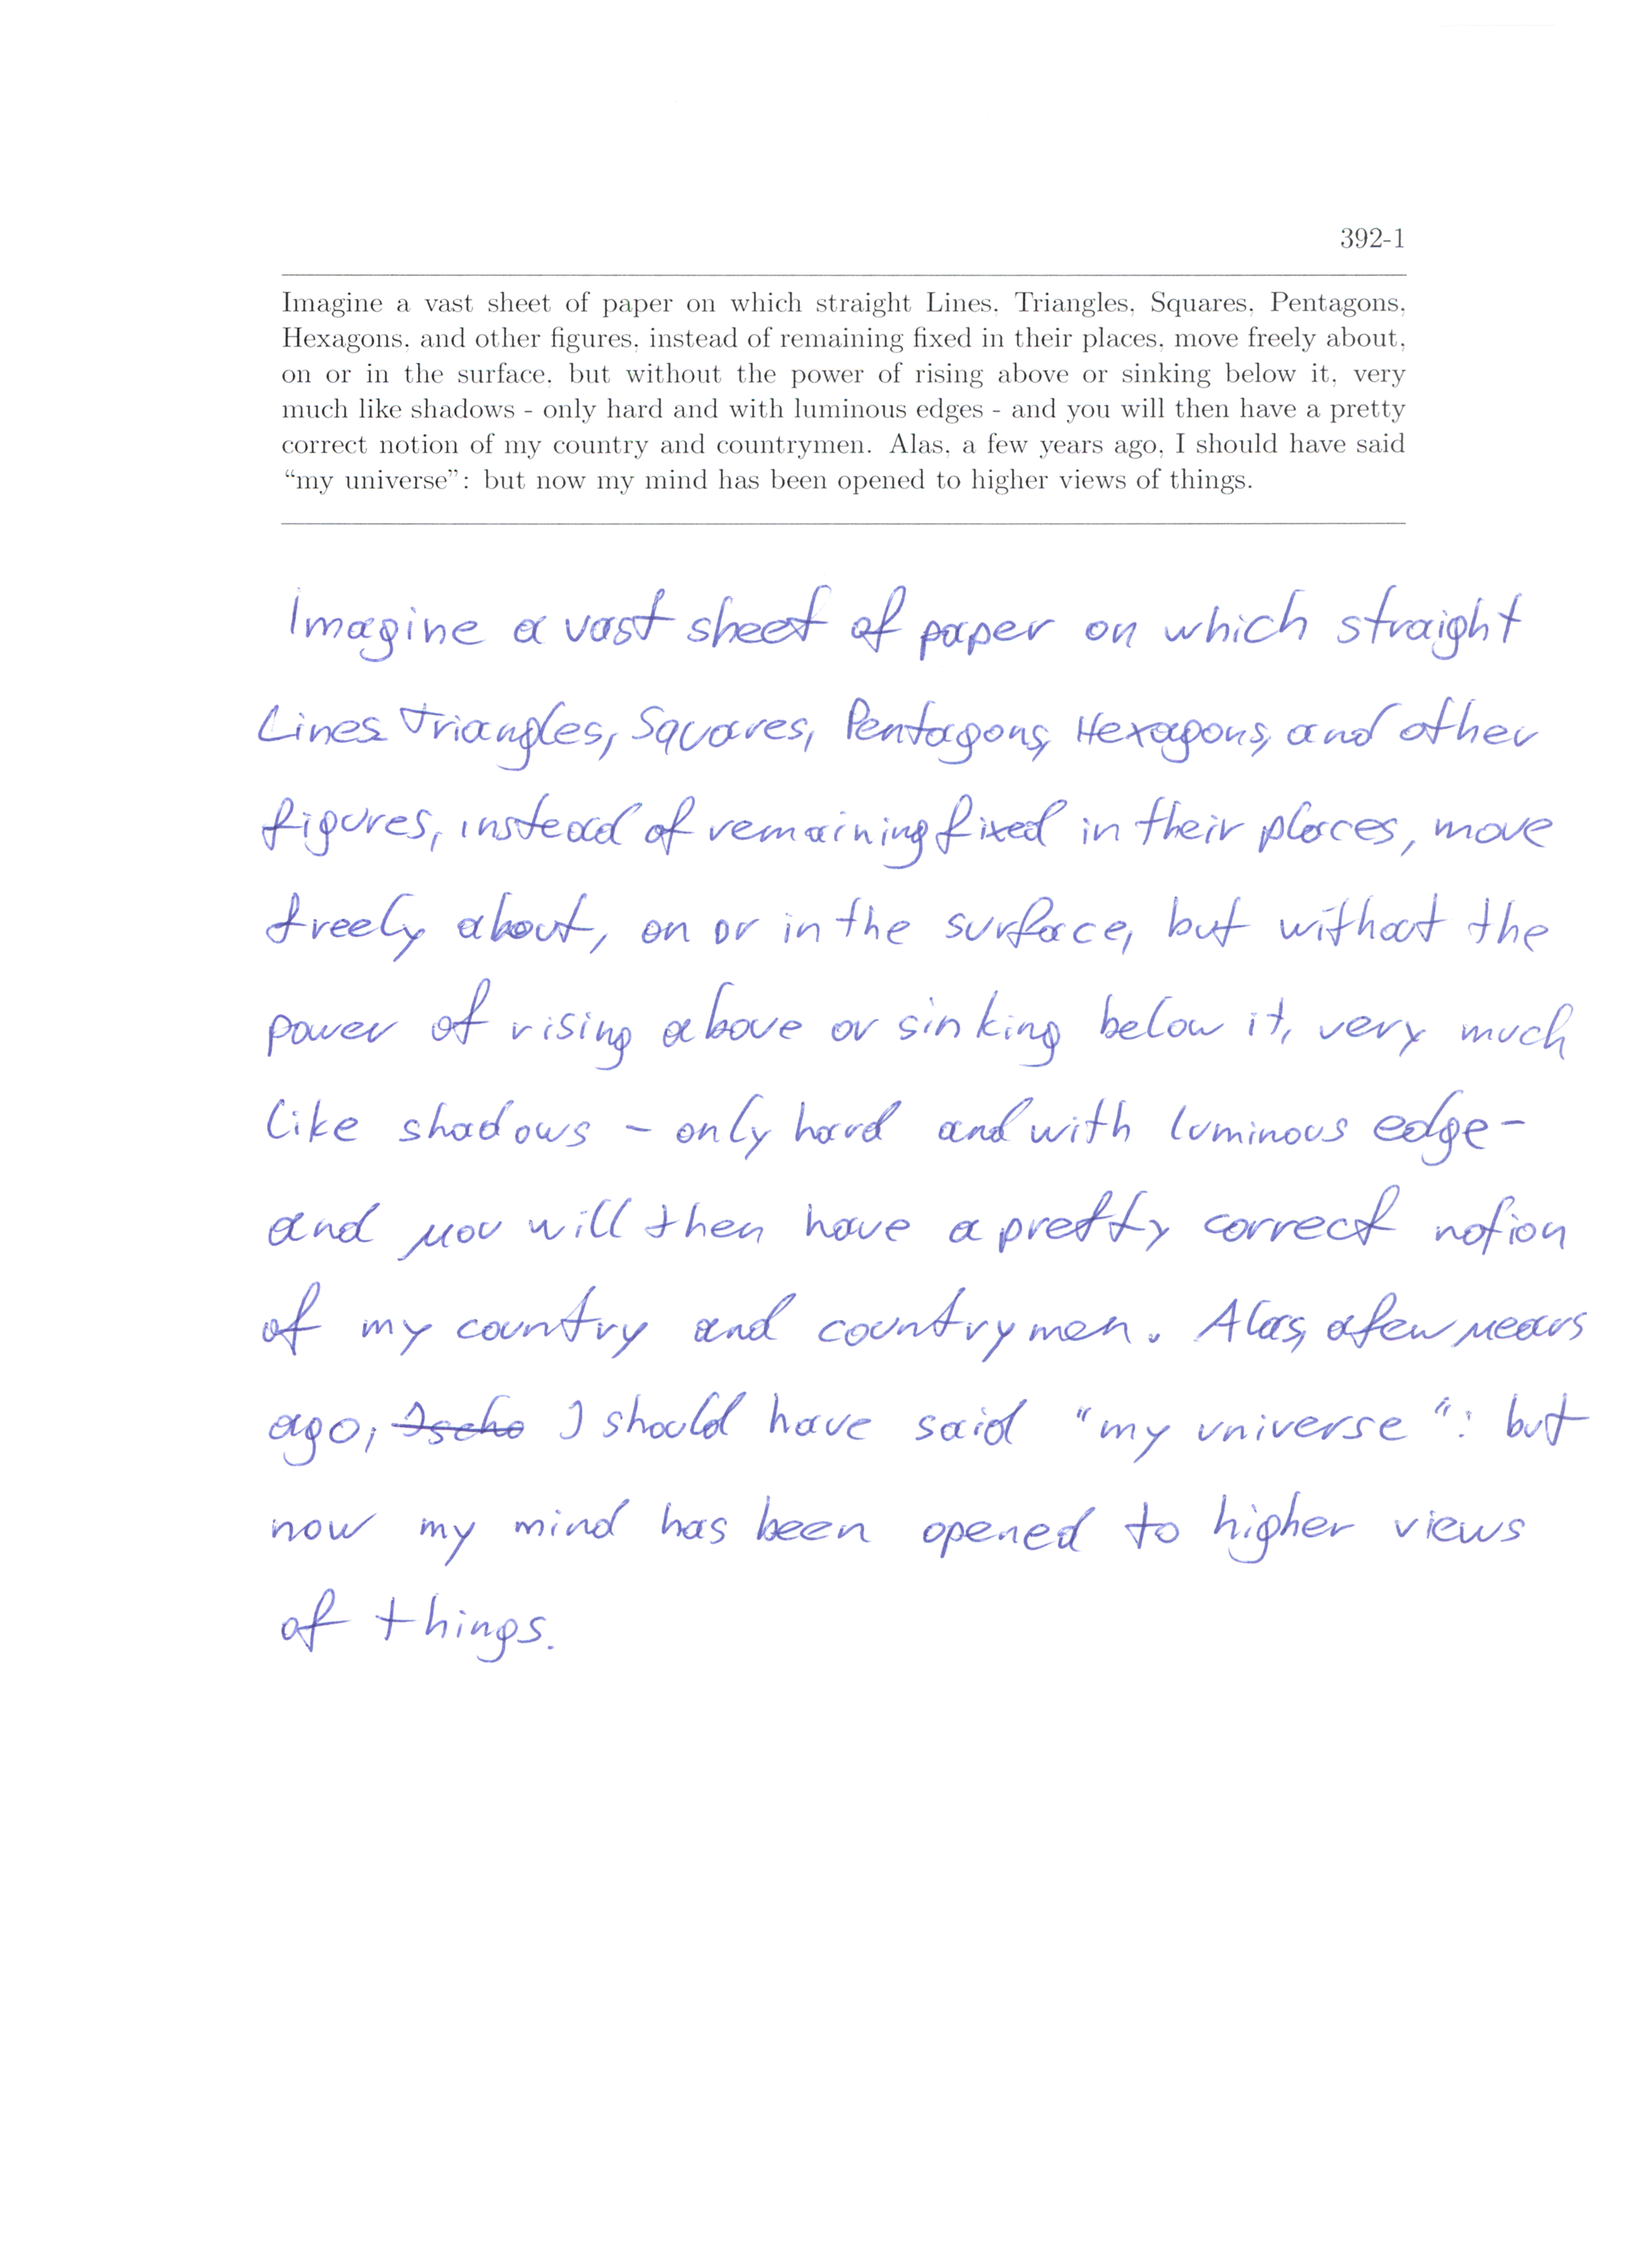 392-1
Imagine a vast sheet of paper on which straight Lines, Triangles, Squares, Pentagons,
Hexagons, and other figures, instead of remaining fixed in their places, move freely about,
on or in the surface, but without the power of rising above or sinking below it, very
much like shadows - only hard and with luminous edges - and you will then have a pretty
correct notion of my country and countrymen. Alas, a few years ago, I should have said
“my universe”: but now my mind has been opened to higher views of things.
Imagine a vast sheet of paper on which straight
Lines Triangles, Squares, Pentagons, Hexagons, and other
figures, instead of remaining fixed in their places, move
freely about, on or in the surface, but without the
power of rising above or sinking below it, very much
like shadows - only hard and with luminous edge -
and you will then have a pretty correct notion
of my country and countrymen. Alas, a few years
ago, I should have said "my universe": but
now my mind has been opened to higher views
of things.